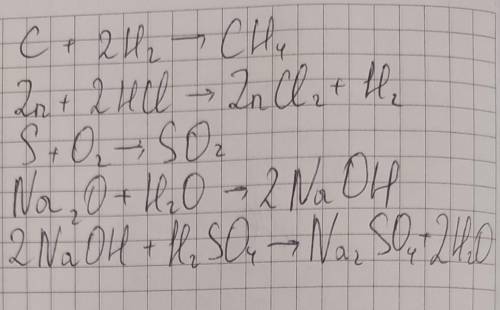 C + 2H₂ → CH₄
Zn + 2HCl → ZnCl₂ + H₂
S + O₂ → SO₂
Na₂O + H₂O → 2NaOH
2NaOH + H₂SO₄ → Na₂SO₄ + 2H₂O